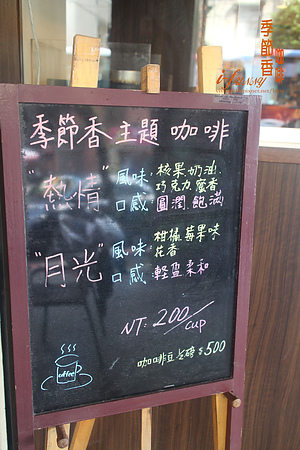 季節香主題咖啡
"熱情"風味:核果奶油.
巧克力蜜香
口感:圓潤.飽滿
"月光"風味:柑橘莓果味
花香
口感:輕盈柔和
NT:200/cup
咖啡豆半磅$500
coffee
季節香
咖啡